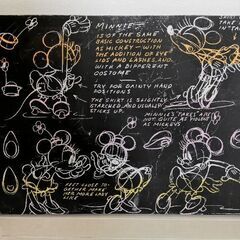 MINNIE
IS OF THE SAME
BASIC CONSTRUCTION
AS MICKEY - WITH
THE ADDITION OF EYE
LIDS AND LASHES, AND
WITH A DIFFERENT
COSTUME
TRY FOR DAINTY HAND
POSITIONS
THE SKIRT IS SLIGHTLY
STARCHED, AND USUALLY
STICKS UP.
MINNIE'S TAKES ARE NOT
QUITE AS VIOLENT AS
MICKEYS
FEET CLOSE TO-
GETHER MAKE
HER MORE LADY
LIKE
TAKE